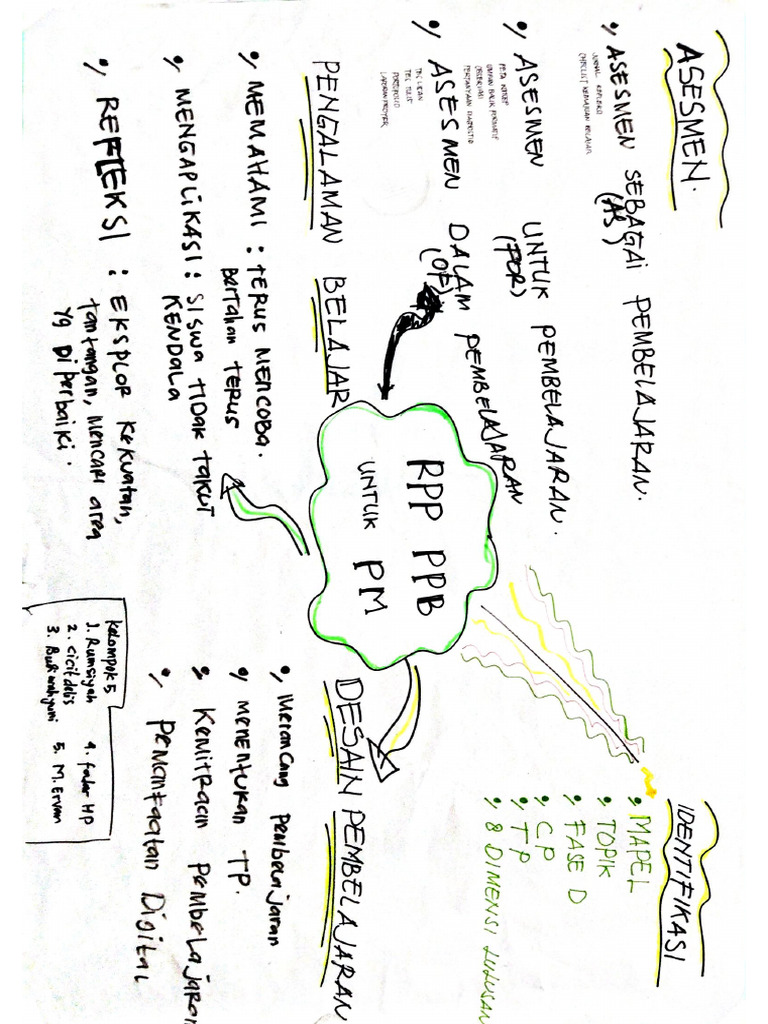 ASESMEN.
• ASESMEN SEBAGAI PEMBELAJARAN.
(AS)
JURNAL REFLEKSI
CHECKLIST KEMAJUAN BELAJAR
• ASESMEN UNTUK PEMBELAJARAN.
(FOR)
PETA KONSEP
UMPAN BALIK FORMATIF
OBSERVASI
PERTANYAAN DIAGNOSTIC
• ASESMEN DALAM PEMBELAJARAN
(OF)
TES LISAN
TES TULIS
PORTOFOLIO
LAPORAN PROYEK
PENGALAMAN BELAJAR
• MEMAHAMI : TERUS MENCOBA.
Bertahan TERUS
• MENGAPLIKASI : SISWA TIDAK TAKUT
KENDALA
• REFLEKSI : EKSPLOR KEKUATAN,
tantangan, MENCARI area
yg Di perbaiki.
RPP PPB
UNTUK PM
IDENTIFIKASI
• MAPEL
• TOPIK
• FASE D
• CP
• TP
• 8 DIMENSI LULUSAN
DESAIN PEMBELAJARAN
• Merancang pembelajaran
• MENENTUKAN TP.
• Kemitraan pembelajaran
• Pemanfaatan Digital
Kelompok 5
1. Rumsiyah
2. Cicit delis
3. Budi wahyuni
4. Fatar HP
5. M. Ervan